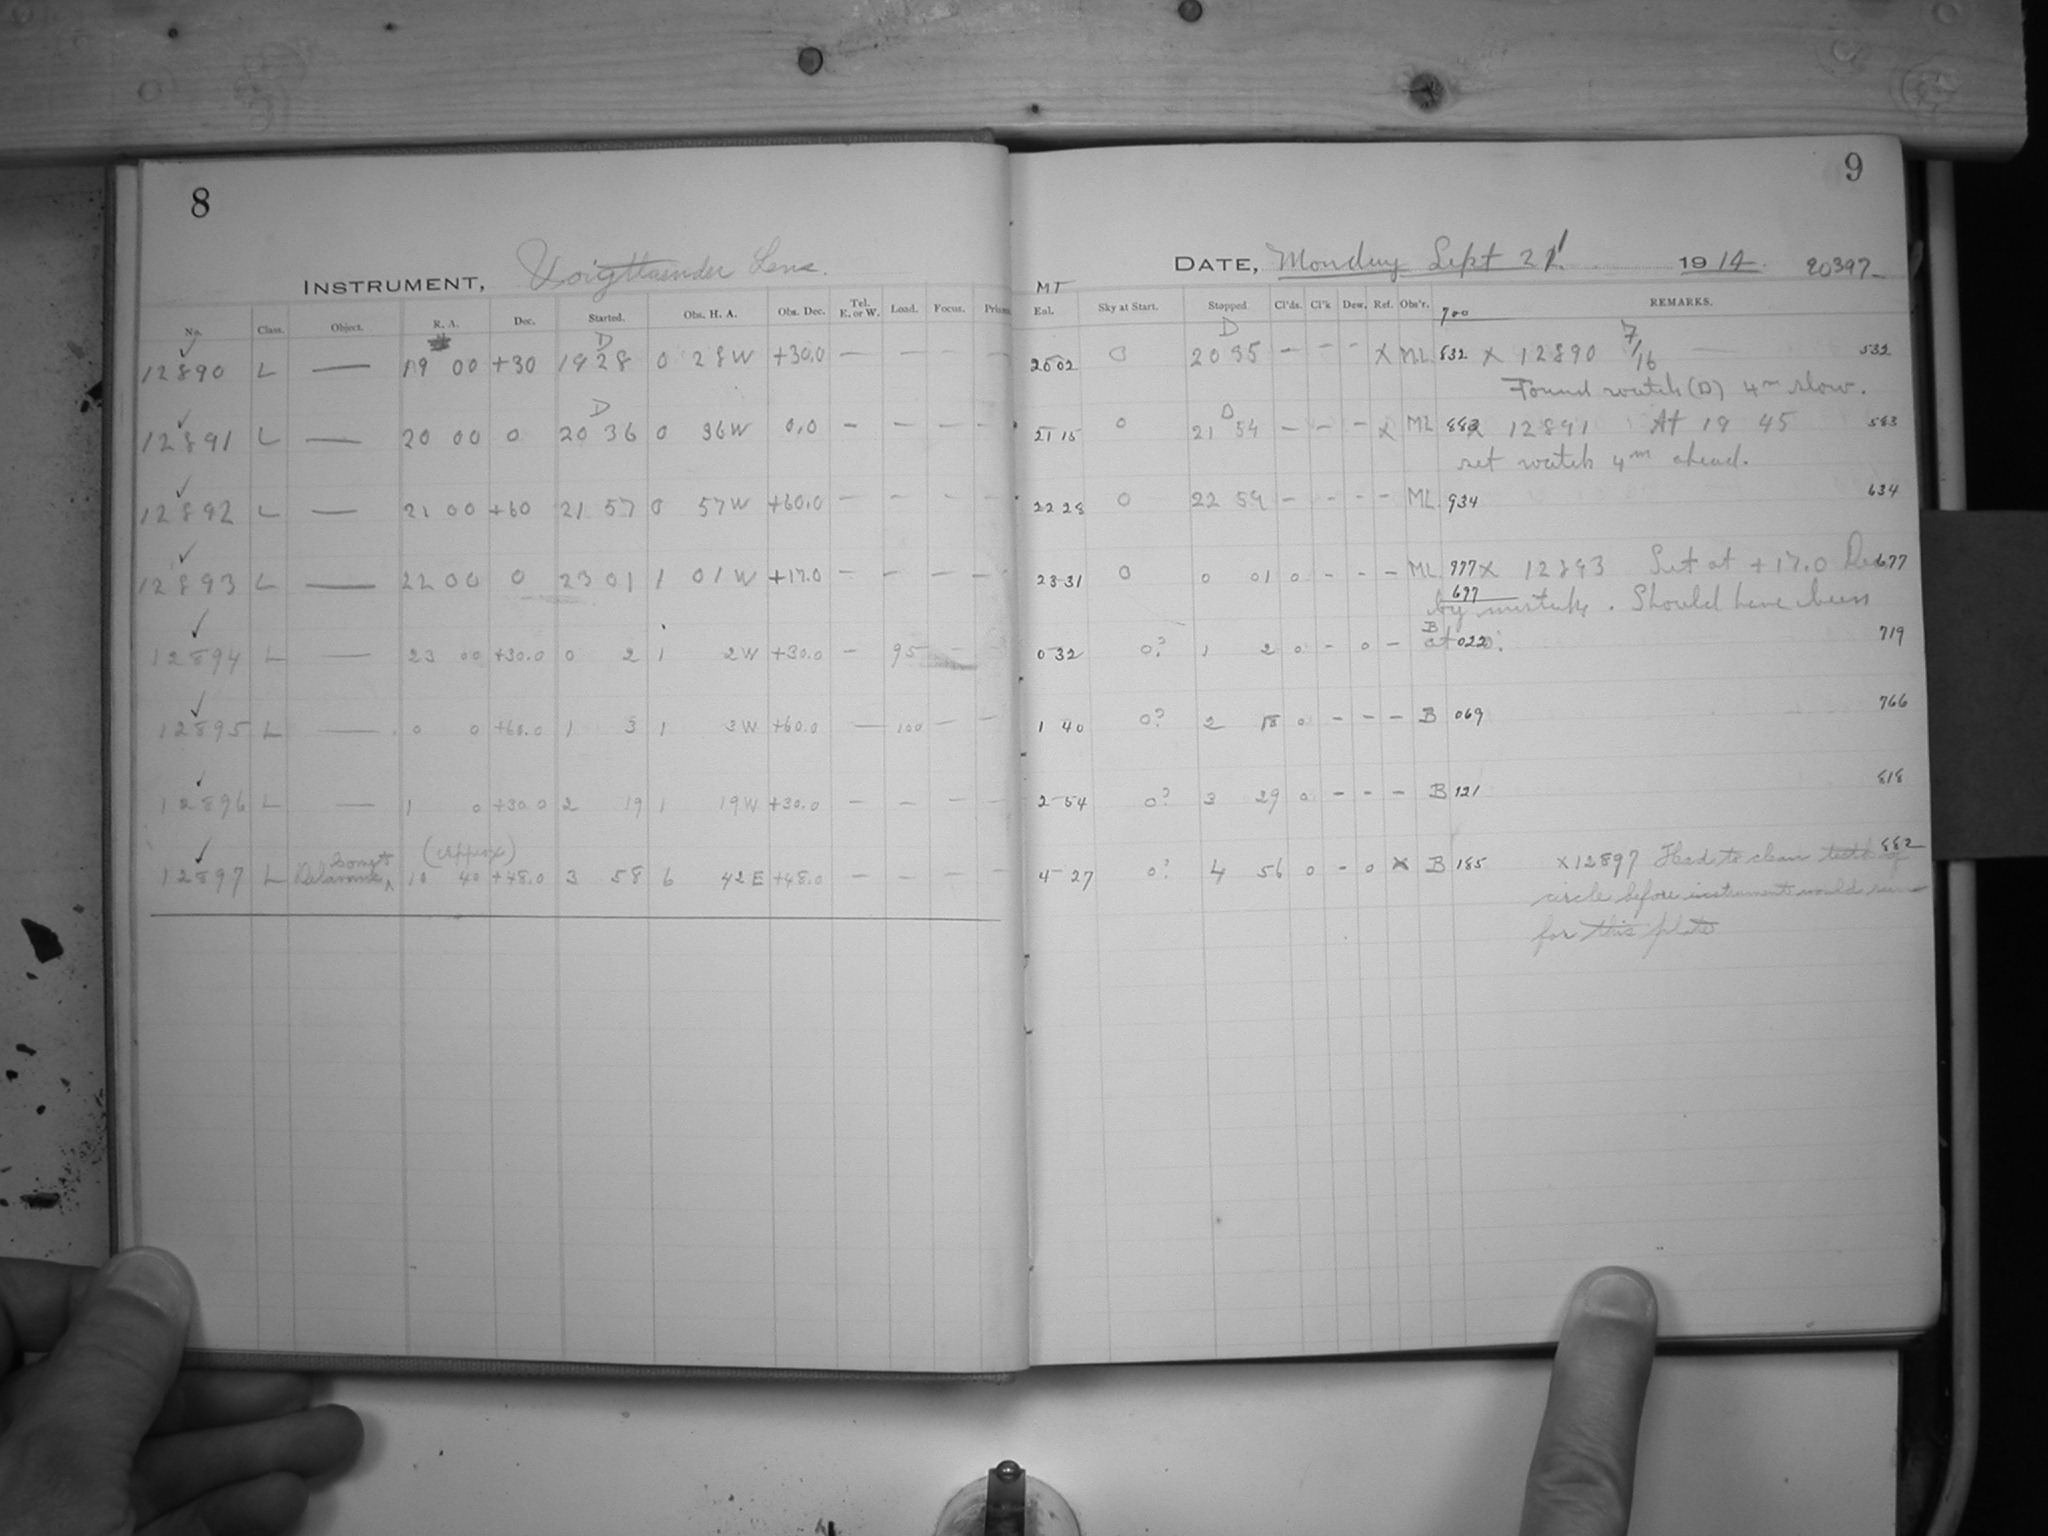 8
INSTRUMENT, Voigtlaender Lens.
No. Class. Object. R. A. Dec. Started. Obs. H. A. Obs. Dec. Tel. E. or W. Load. Focus. Prism
12890 L — 19 00 +30 D 19 28 0 28W +30.0 — — — —
12891 L — 20 00 0 D 20 36 0 36W 0.0 — — — —
12892 L — 21 00 +60 21 57 0 57W +60.0 — — — —
12893 L — 22 00 0 23 01 1 01W +17.0 — — — —
12894 L — 23 00 +30.0 0 2 1 2W +30.0 — 95 — —
12895 L — 0 0 +60.0 1 3 1 3W +60.0 — 100 — —
12896 L — 1 0 +30.0 2 19 1 19W +30.0 — — — —
(approx)
12897 L Delavan's Comet 10 40 +48.0 3 58 6 42E +48.0 — — — —
9
DATE, Monday Sept 21 1914 20397
MT
Eal. Sky at Start. Stopped Cl'ds. Cl'k Dew. Ref. Obs'r. 700 REMARKS.
20 02 0 D 20 35 — — — X ML 832 X 12890 7/16 532
Found watch (D) 4m slow.
21 15 0 D 21 54 — — — X ML 883 X 12891 At 19 45 583
set watch 4m ahead.
22 28 0 22 59 — — — — ML 934 634
23 31 0 0 01 0 — — — ML 977 X 12893 Set at +17.0 Dec 677
697
by mistake. Should have been
at 0.0.
0 32 0? 1 2 0 — 0 — B 022 719
1 40 0? 2 18 0 — — — B 069 766
2 54 0? 3 29 0 — — — B 121 818
4 27 0? 4 56 0 — 0 X B 185 X12897 Had to clean teeth of 882
circle before instrument would run
for this plate